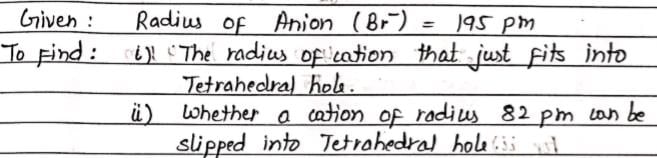 Given : Radius of Anion (Br⁻) = 195 pm
To Find : i) The radius of cation that just fits into
Tetrahedral hole.
ii) Whether a cation of radius 82 pm can be
slipped into Tetrahedral hole